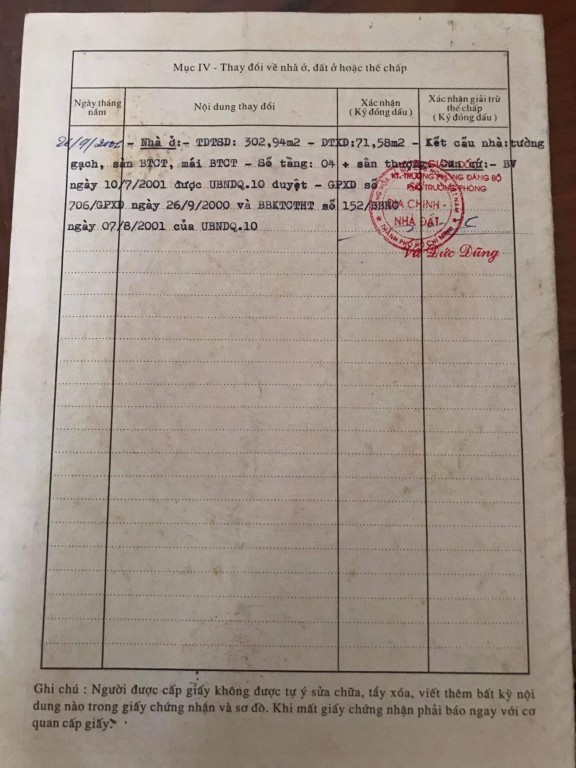 Mục IV - Thay đổi về nhà ở, đất ở hoặc thế chấp
Ngày tháng năm
Nội dung thay đổi
Xác nhận
( Ký đóng dấu )
Xác nhận giải trừ thế chấp
( Ký đóng dấu )
26/9/2001 - Nhà ở:- TDTSD: 302,94m2 - DTXD:71,58m2 - Kết cấu nhà:tường
gạch, sàn BTCT, mái BTCT - Số tầng: 04 + sân thượng. Căn cứ:- BV
ngày 10/7/2001 được UBNDQ.10 duyệt - GPXD số
706/GPXD ngày 26/9/2000 và BBKTCTHT số 152/
ngày 07/8/2001 của UBNDQ.10
KT. TRƯỞNG PHÒNG ĐĂNG BỘ
PHÓ TRƯỞNG PHÒNG
ĐỊA CHÍNH -
NHÀ ĐẤT
THÀNH PHỐ HỒ CHÍ MINH
Vũ Đức Dũng
Ghi chú : Người được cấp giấy không được tự ý sửa chữa, tẩy xóa, viết thêm bất kỳ nội
dung nào trong giấy chứng nhận và sơ đồ. Khi mất giấy chứng nhận phải báo ngay với cơ
quan cấp giấy.